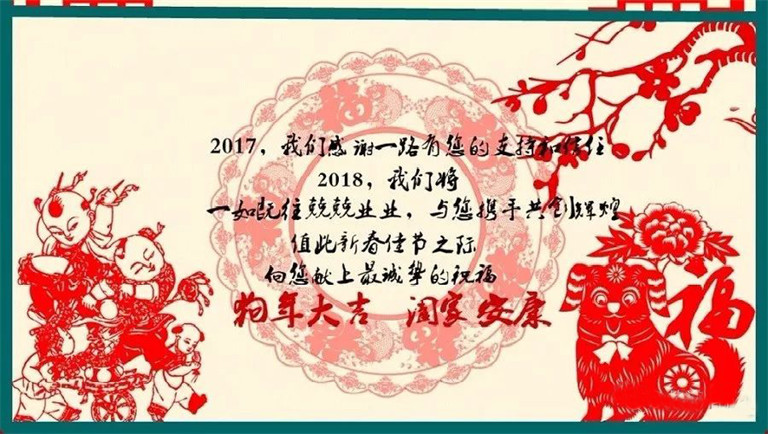 2017，我们感谢一路有您的支持和信任
2018，我们将
一如既往兢兢业业，与您携手共创辉煌
值此新春佳节之际
向您献上最诚挚的祝福
狗年大吉 阖家安康
福